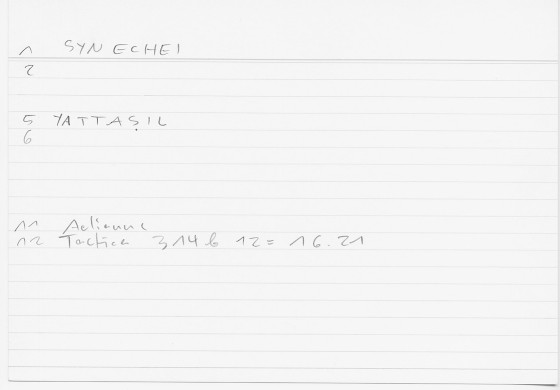 1 SYNECHEI
2
5 YATTAṢIL
6
11 Aelianus
12 Tactica 3,14 b 12 = 16.21